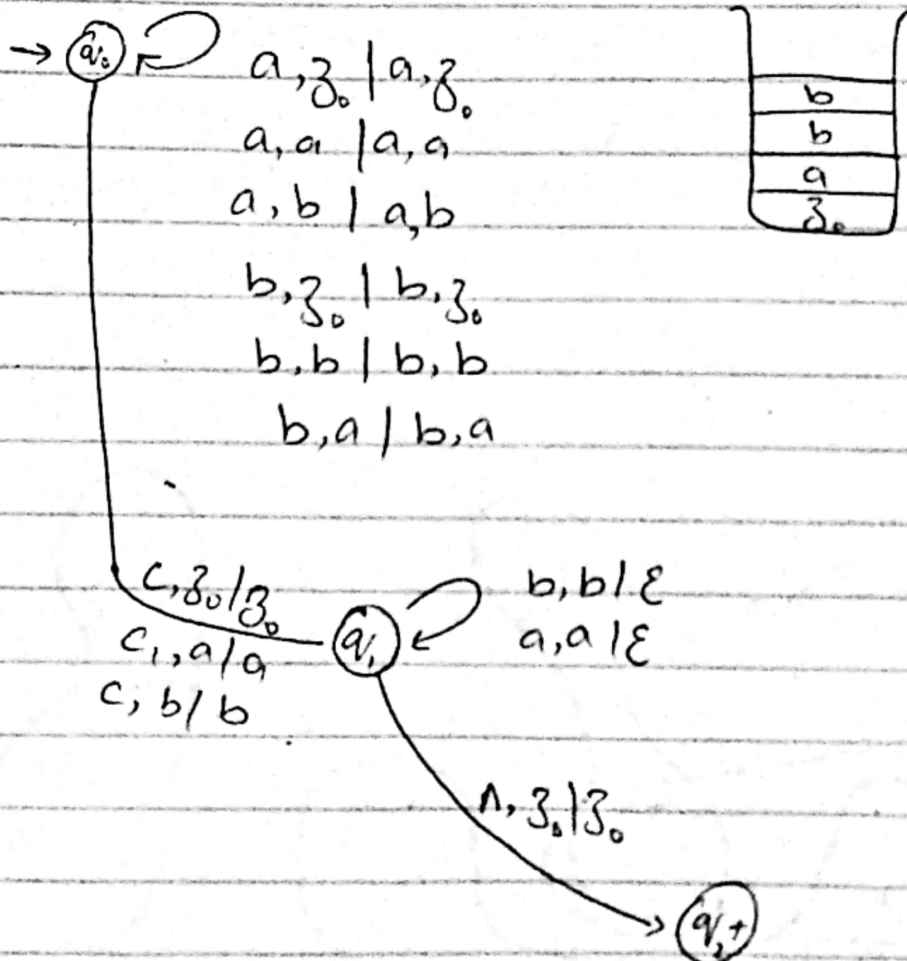 → q₀
a, z₀ | a, z₀
a, a | a, a
a, b | a, b
b, z₀ | b, z₀
b, b | b, b
b, a | b, a
b
b
a
z₀
c, z₀ / z₀
c, a / a
c, b / b
q₁
b, b / ε
a, a / ε
Λ, z₀ | z₀